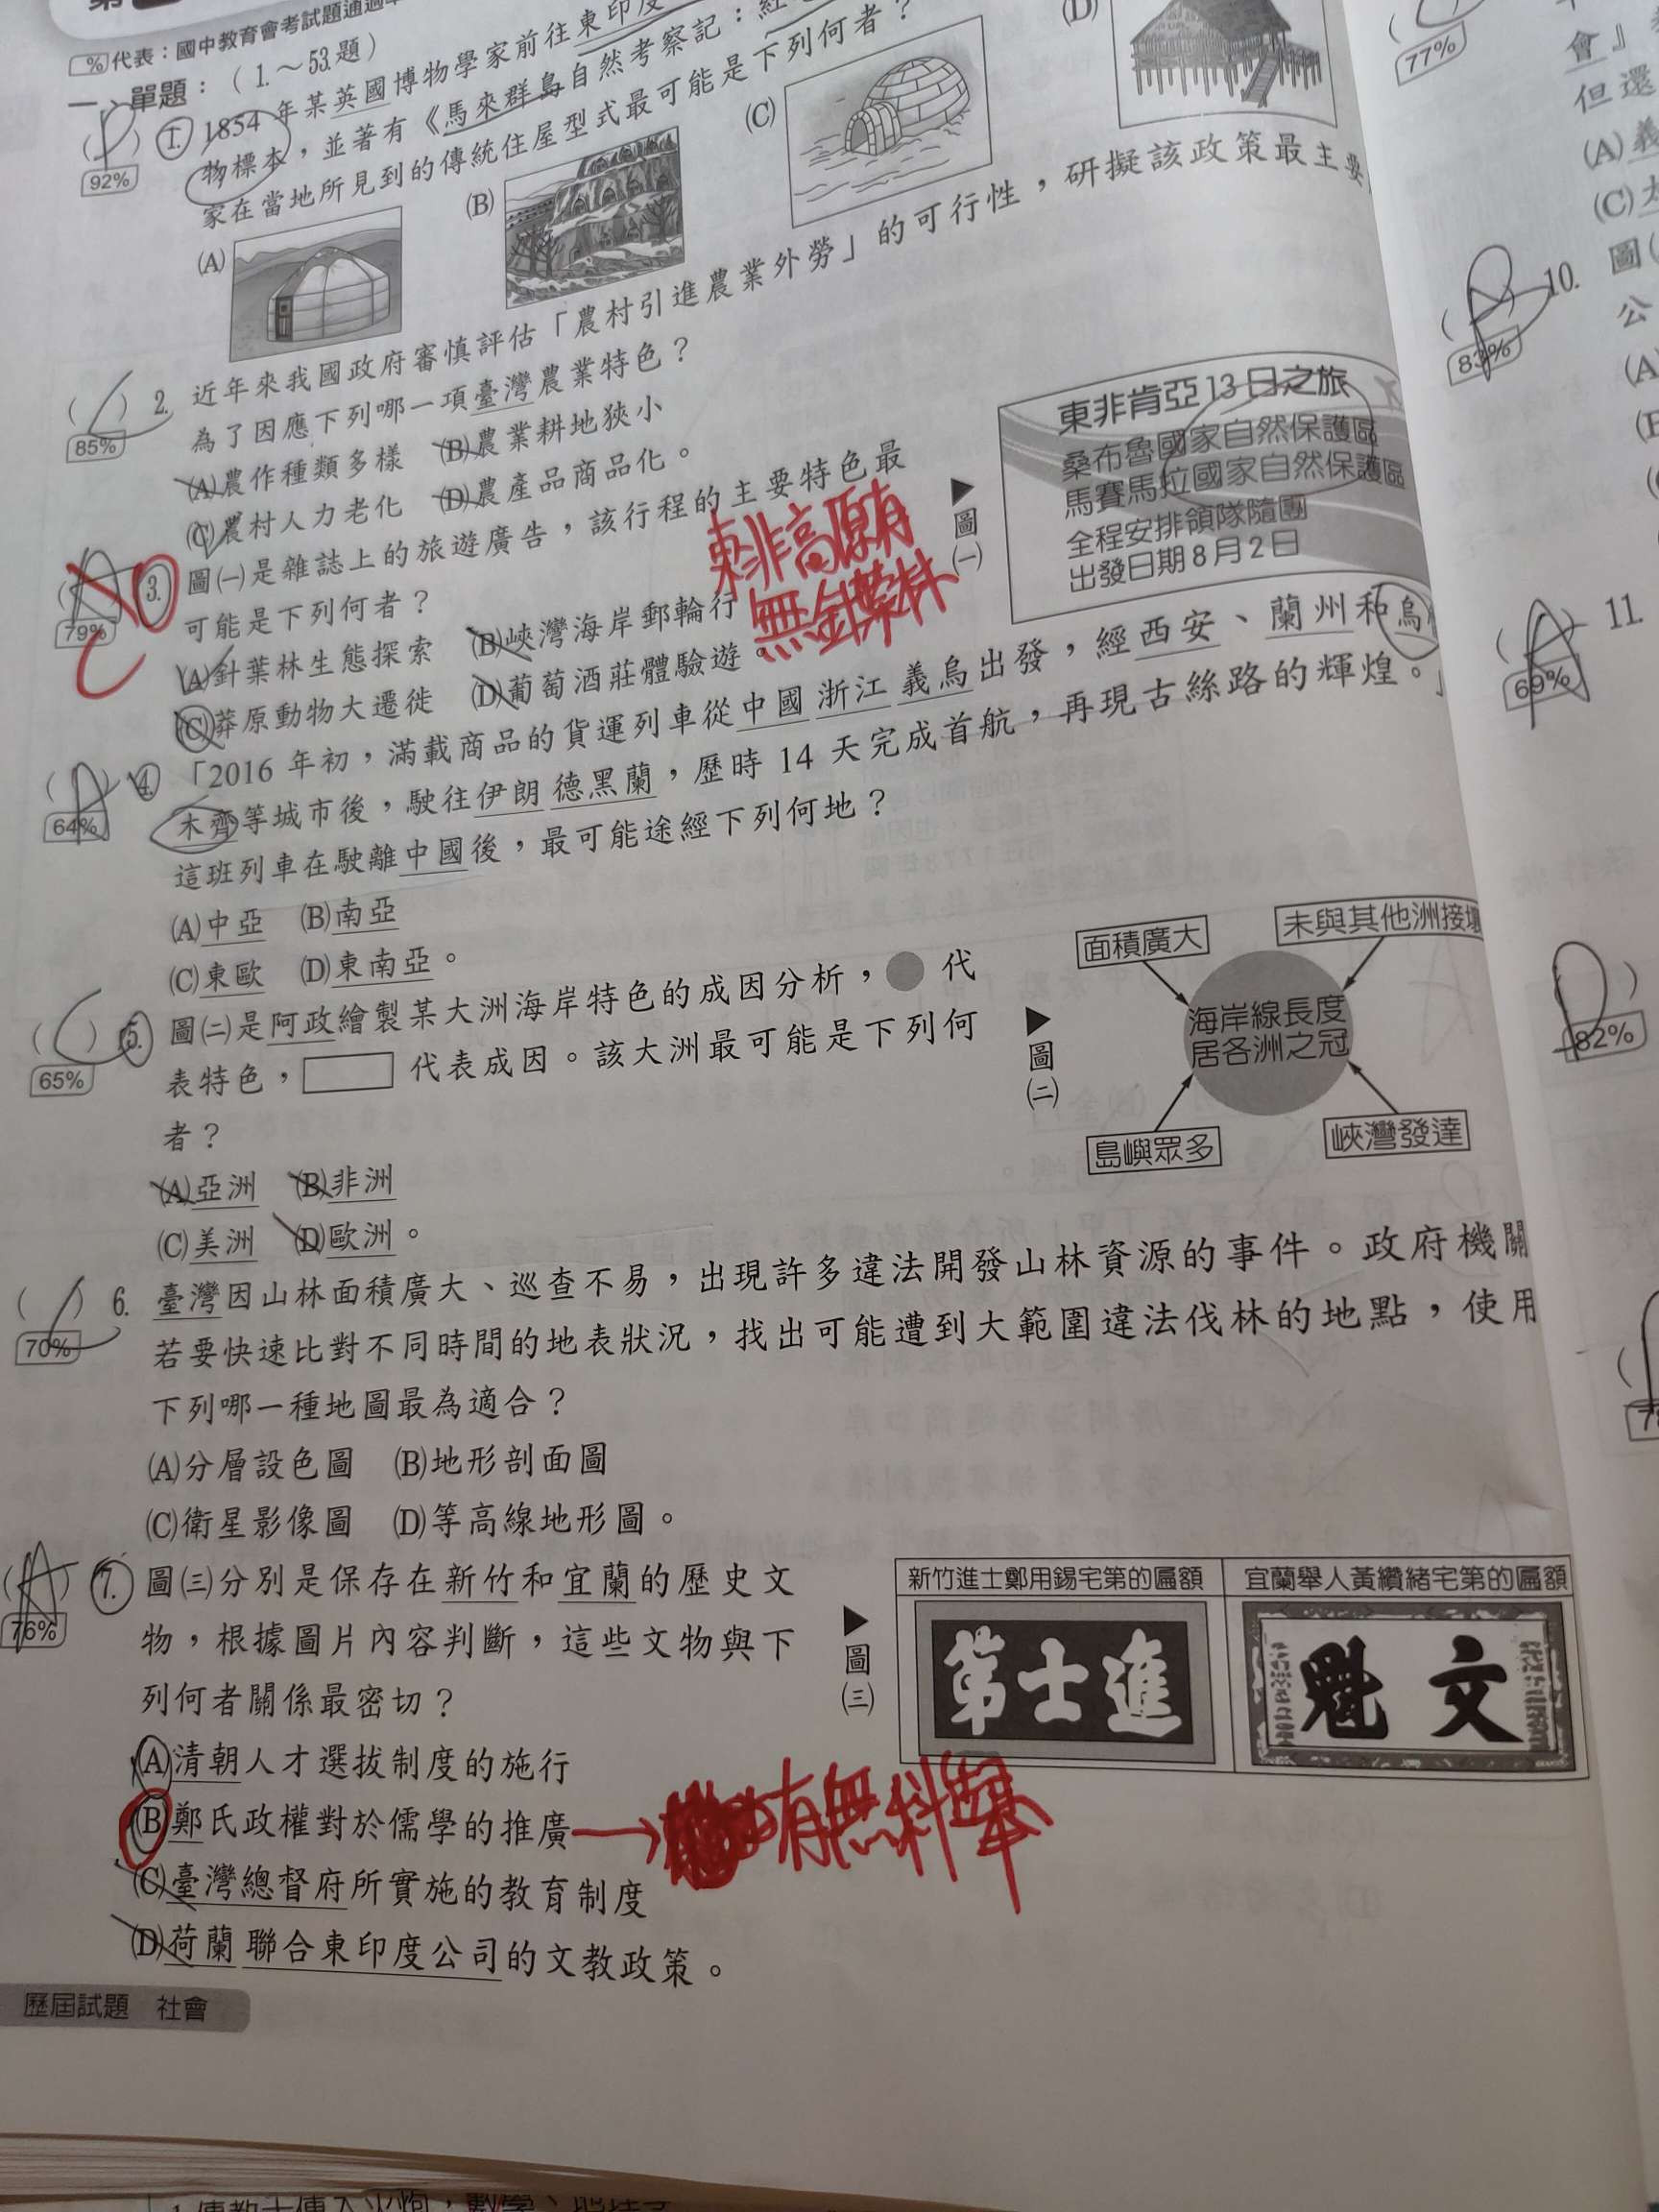 % 代表：國中教育會考試題通過率
一、單題：（1.～53.題）
92%
1. 1854 年某英國博物學家前往東印度
物標本，並著有《馬來群島自然考察記：紅
家在當地所見到的傳統住屋型式最可能是下列何者？
(A)
(B)
(C)
(D)
85%
2. 近年來我國政府審慎評估「農村引進農業外勞」的可行性，研擬該政策最主要
為了因應下列哪一項臺灣農業特色？
(A)農作種類多樣 (B)農業耕地狹小
(C)農村人力老化 (D)農產品商品化。
79%
A
C
3. 圖㈠是雜誌上的旅遊廣告，該行程的主要特色最
可能是下列何者？
(A)針葉林生態探索 (B)峽灣海岸郵輪行
(C)莽原動物大遷徙 (D)葡萄酒莊體驗遊。
東非高原有
無針葉林
▶圖㈠
東非肯亞13日之旅
桑布魯國家自然保護區
馬賽馬拉國家自然保護區
全程安排領隊隨團
出發日期8月2日
64%
A
4. 「2016 年初，滿載商品的貨運列車從中國浙江義烏出發，經西安、蘭州和烏
木齊等城市後，駛往伊朗德黑蘭，歷時 14 天完成首航，再現古絲路的輝煌。」
這班列車在駛離中國後，最可能途經下列何地？
(A)中亞 (B)南亞
(C)東歐 (D)東南亞。
65%
C
5. 圖㈡是阿政繪製某大洲海岸特色的成因分析， 代
表特色， 代表成因。該大洲最可能是下列何
者？
(A)亞洲 (B)非洲
(C)美洲 (D)歐洲。
▶圖㈡
面積廣大
未與其他洲接壤
海岸線長度
居各洲之冠
島嶼眾多
峽灣發達
70%
6. 臺灣因山林面積廣大、巡查不易，出現許多違法開發山林資源的事件。政府機關
若要快速比對不同時間的地表狀況，找出可能遭到大範圍違法伐林的地點，使用
下列哪一種地圖最為適合？
(A)分層設色圖 (B)地形剖面圖
(C)衛星影像圖 (D)等高線地形圖。
76%
A
7. 圖㈢分別是保存在新竹和宜蘭的歷史文
物，根據圖片內容判斷，這些文物與下
列何者關係最密切？
(A)清朝人才選拔制度的施行
(B)鄭氏政權對於儒學的推廣
有無科舉
(C)臺灣總督府所實施的教育制度
(D)荷蘭聯合東印度公司的文教政策。
▶圖㈢
新竹進士鄭用錫宅第的匾額
宜蘭舉人黃纘緒宅第的匾額
第士進
魁文
歷屆試題 社會
77%
會』
但還
(A)義
(C)
83%
10. 圖
公
(A)
69%
A
11.
82%